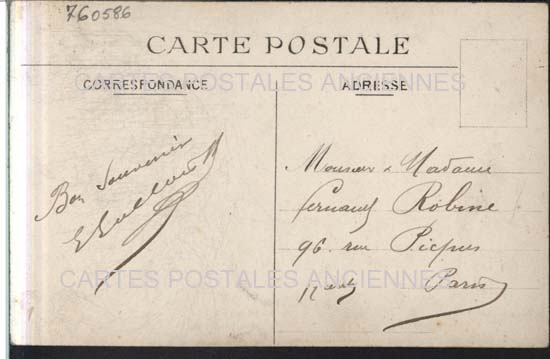 760586
CARTE POSTALE
CARTES POSTALES ANCIENNES
CORRESPONDANCE
ADRESSE
Bon Souvenir
Monsieur & Madame
Fernand Robine
96. rue Picpus
Paris
CARTES POSTALES ANCIENNES